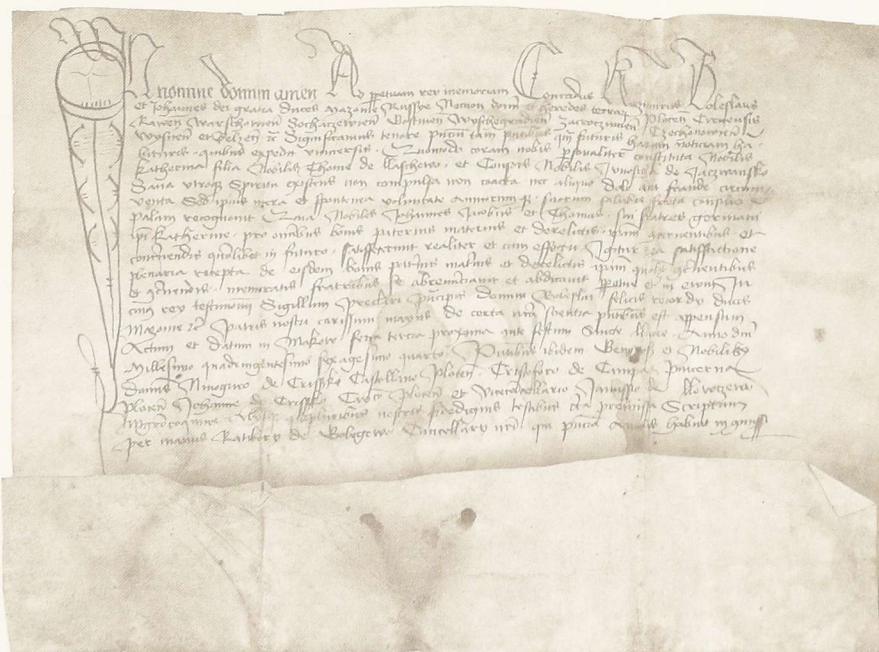 In nomine domini amen Ad perpetuam rei memoriam Conradus Kazimirus Boleslaus
et Johannes dei gracia duces Mazouie Russye Necnon domini et heredes terrarum Plocen Cirnensis
Rawen Warschouien Sochaczewien Gostinen Wyschegradien Zacroczimen Czechonowien
Wysnen et Belzen &c Significamus tenore presencium tam presentibus quam futuris harum noticiam ha
bituris quibus expedit vniuersis Quomodo coram nobis personaliter constituta Nobilis
Katherina filia Nobilis Thome de et Consors Nobilis de
Sana vtroque Spiritu existens non compulsa non coacta nec aliquo dolo aut fraude circum
uenta Sed ipius mera et spontanea voluntate Amicorumque suorum salubri freta consilio
palam recognouit Quia Nobiles Johannes Jacobus et Thomas sui fratres germani
ipsi Katherine pro omnibus bonis paternis maternis et derelictis ipsam concernentibus et
quolibet in futuro satisfecerunt realiter et cum effectu Igitur ea satisfactione
plenaria recepta de eisdem bonis paternis maternis et derelictis ipsam
et memoratis fratribus se abrenunciauit et abdicauit perpetue et in ewum In
cuius rei testimonium Sigillum Preclari Principis domini Boleslai felicis recordy ducis
Mazouie &c Patris nostri carissimi maius de certa nostra sciencia presentibus est appensum
Actum et datum in Makow feria tercia proxima ante festum Sancte Anno domini
Millesimo quadringentesimo sexagesimo quarto Presentibus ibidem et Nobilibus
Ninogneo de Crissko Castellano Plocen Cristoforo de Pincerna
Plocen Johanne de Crissko Plocen et Vicecancellario de
pluribus nostris fidedignis testibus circa premissa Scriptum
per manus Ratibory de Cancellary nostri qui presencia habuit in